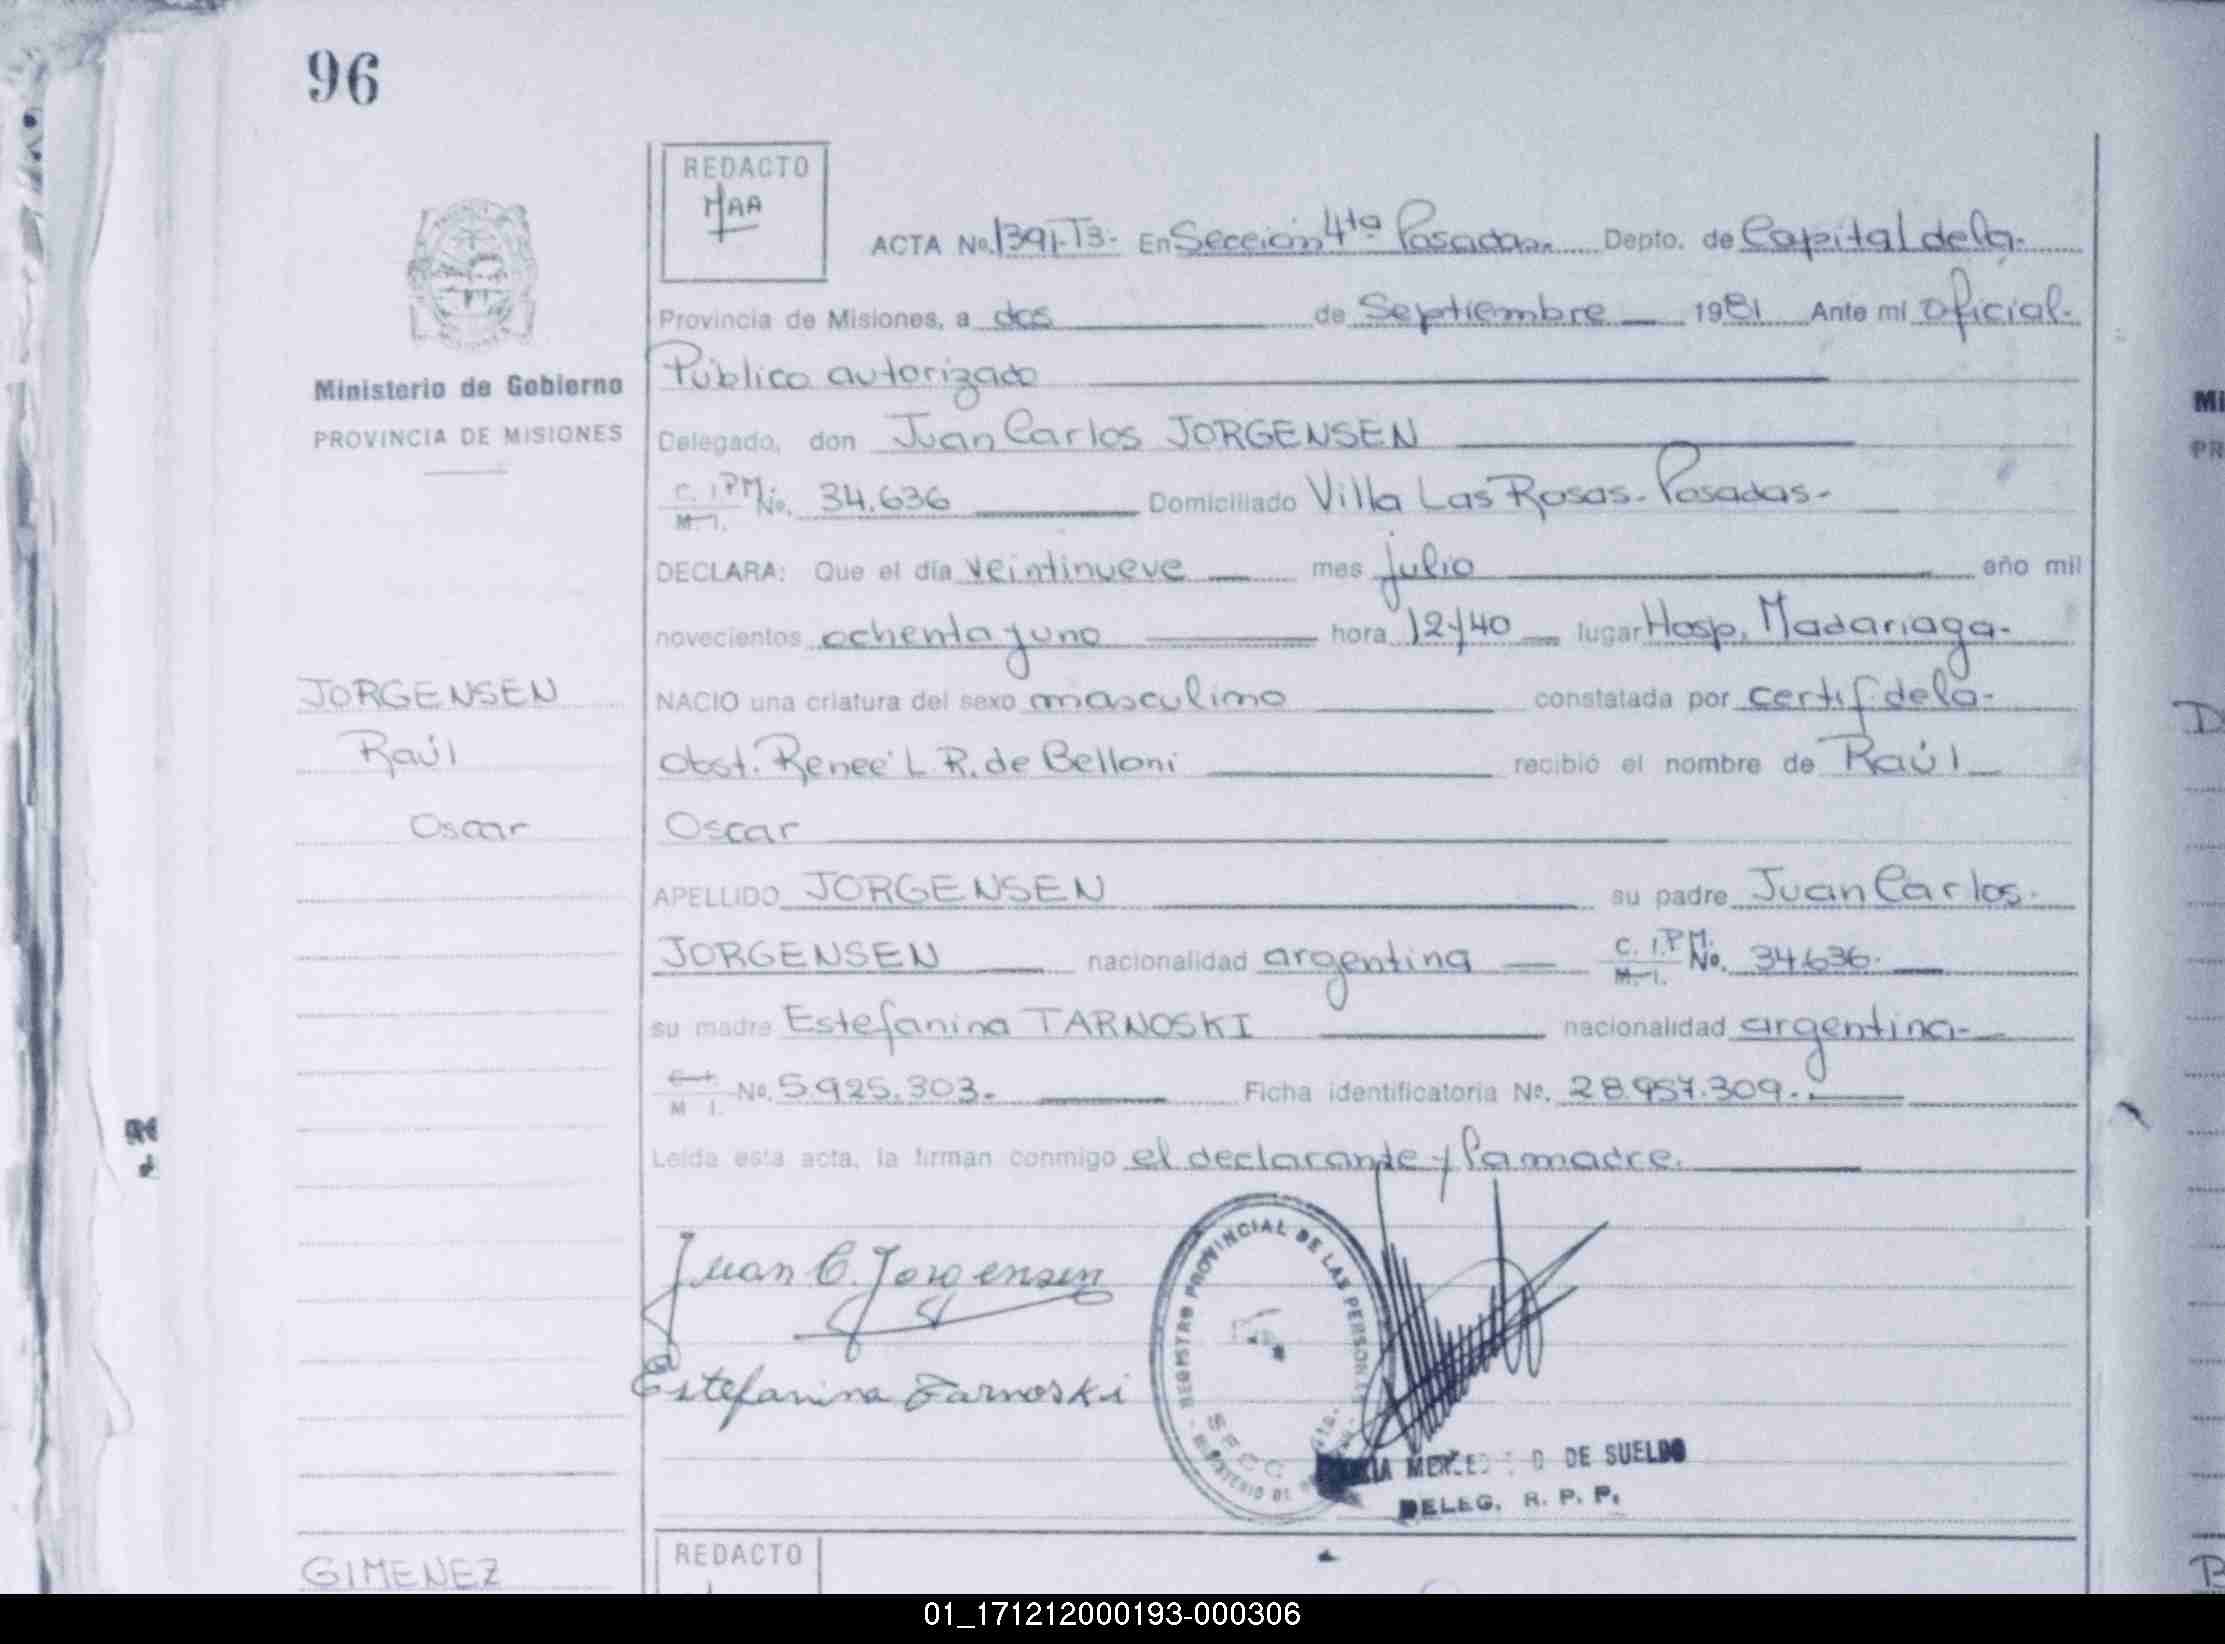 96
REDACTO
MAA
ACTA No. 1391-T3- En Sección 4ta Posadas Depto. de Capital de la-
Provincia de Misiones, a dos de Septiembre 1981 Ante mi Oficial-
Público autorizado
Ministerio de Gobierno
PROVINCIA DE MISIONES
Delegado, don Juan Carlos JORGENSEN
C. I.P.M. No. 34.636 Domiciliado Villa Las Rosas- Posadas-
M. I.
DECLARA: Que el día veintinueve mes julio año mil
novecientos ochenta y uno hora 12y40 lugar Hosp. Madariaga-
JORGENSEN
Raúl
Oscar
NACIO una criatura del sexo masculino constatada por certif. de la-
Obst. Reneé L. R. de Belloni recibió el nombre de Raúl
Oscar
APELLIDO JORGENSEN su padre Juan Carlos-
JORGENSEN nacionalidad argentina C. I.P.M. No. 34.636-
M. I.
su madre Estefanina TARNOSKI nacionalidad argentina-
C. I.
M I. No. 5.925.303- Ficha identificatoria No. 28.957.309-
Leída esta acta, la firman conmigo el declarante y la madre.
Juan C. Jorgensen
Estefanina Tarnoski
REGISTRO PROVINCIAL DE LAS PERSONAS
MINISTERIO DE
DE SUELDO
DELEG. R. P. P.
GIMENEZ
REDACTO
01_171212000193-000306